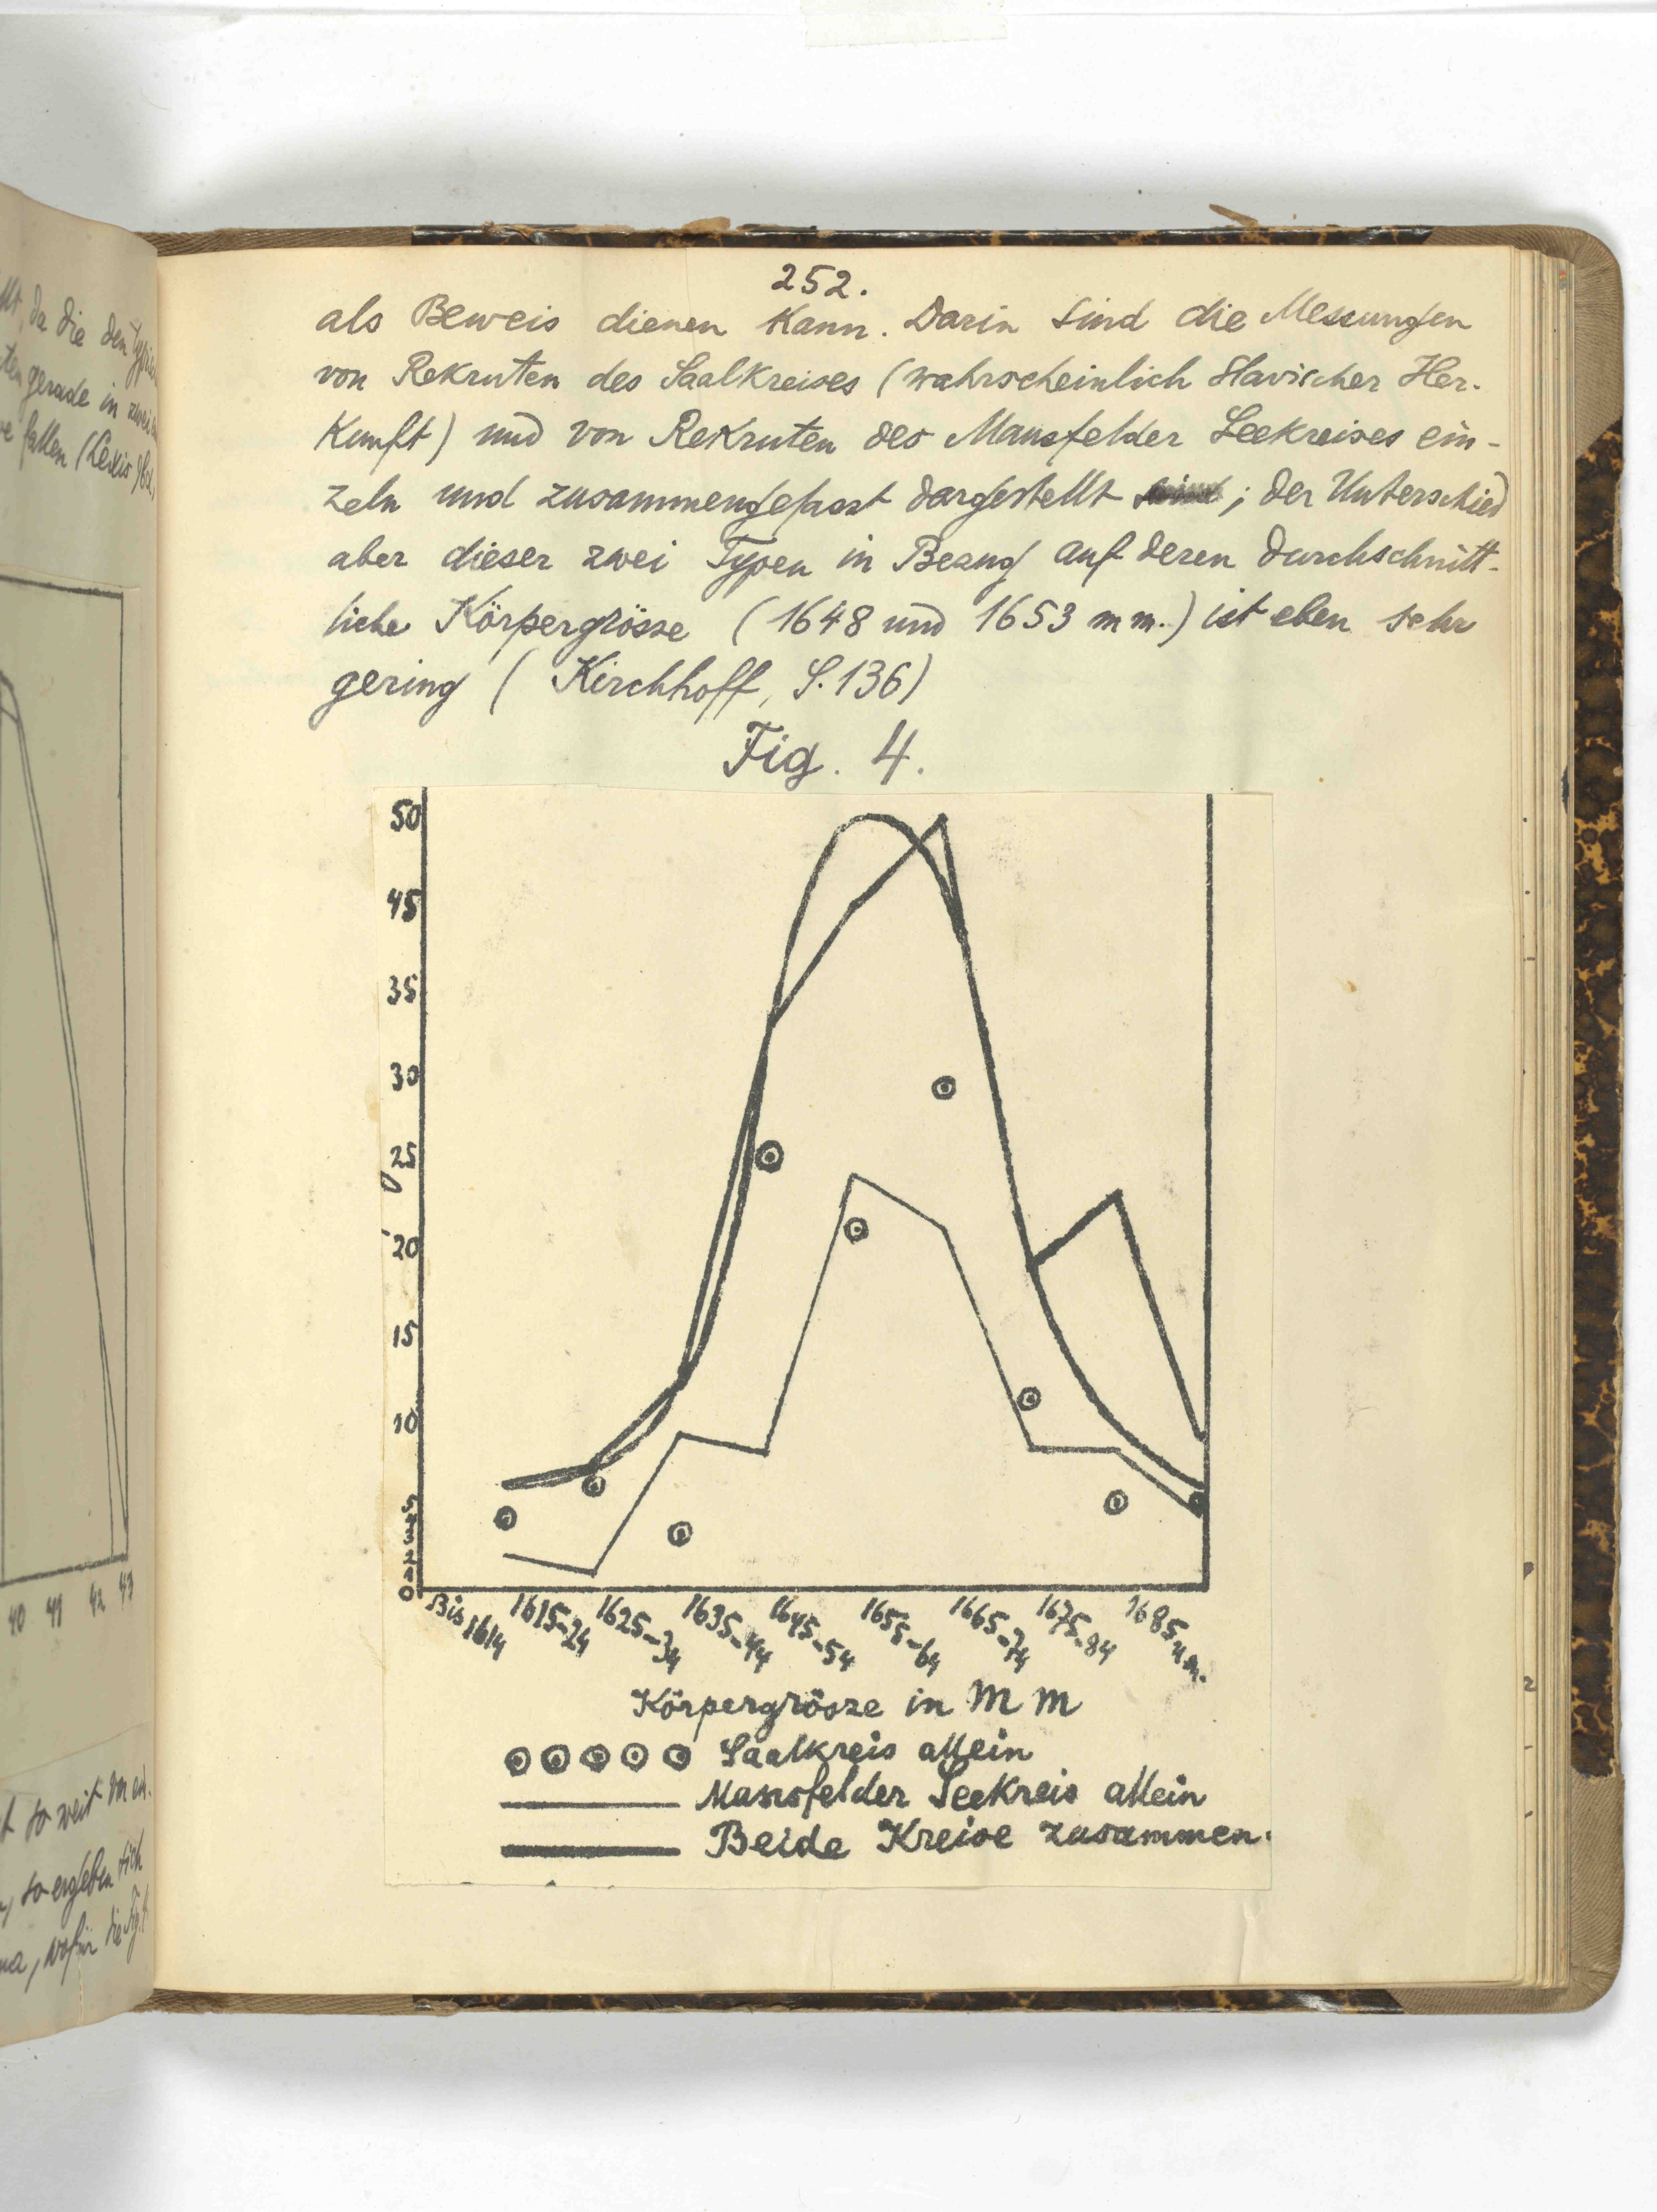 252.
als Beweis dienen kann. Darin sind die Messungen
von Rekruten des Saalkreises (wahrscheinlich Slavischer Her-
kunft) und von Rekruten des Mansfelder Seekreises ein-
zeln und zusammengefasst dargestellt ; der Unterschied
aber dieser zwei Typen in Bezug auf deren durchschnitt-
liche Körpergrösse (1648 und 1653 mm.) ist eben sehr
gering (Kirchhoff, S. 136)
Fig. 4.
50
45
35
30
25
20
15
10
5
4
3
2
1
0
Bis 1614
1615-24
1625-34
1635-44
1645-54
1655-64
1665-74
1675-84
1685 u. m.
Körpergrösse in M M
Saalkreis allein
Mansfelder Seekreis allein
Beide Kreise zusammen.
da die den
gerade in zwei
fallen
40 41 42 43
so weit
so ergeben sich
, wofür die Fig.